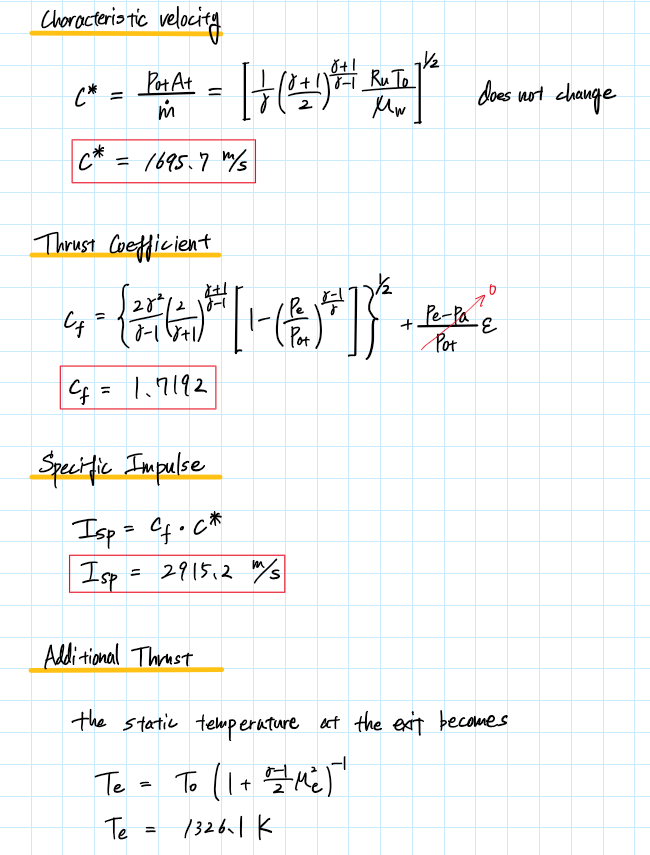 Characteristic velocity
C* = P₀tAt/ṁ = [1/γ ((γ+1)/2)^((γ+1)/(γ-1)) RuT₀/μw]^(1/2) does not change
C* = 1695.7 m/s
Thrust Coefficient
Cf = {2γ²/(γ-1) (2/(γ+1))^((γ+1)/(γ-1)) [1-(Pe/P₀t)^((γ-1)/γ)]}^(1/2) + (Pe-Pa)/P₀t ε 0
Cf = 1.7192
Specific Impulse
Isp = Cf · C*
Isp = 2915.2 m/s
Additional Thrust
the static temperature at the exit becomes
Te = T₀ (1 + (γ-1)/2 Me²)^-1
Te = 1326.1 K